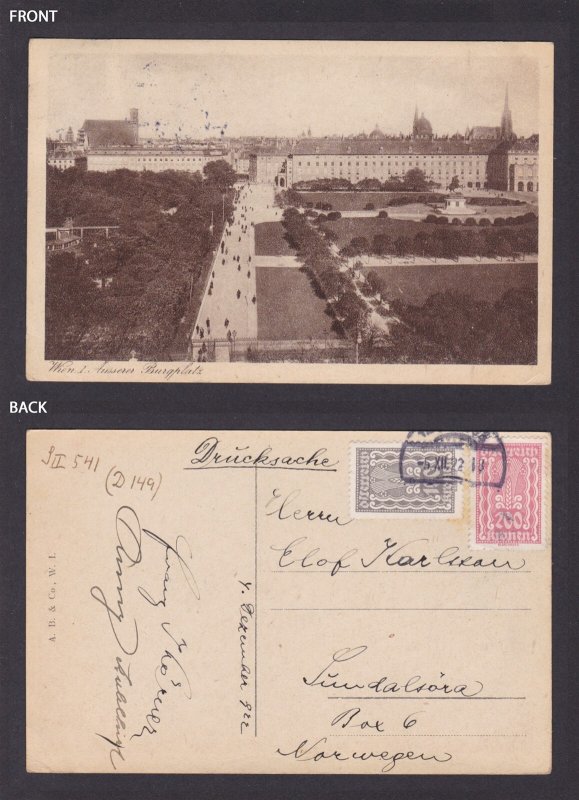 FRONT
Wien. I. Äusserer Burgplatz
BACK
I II 541
(D 149)
Drucksache
-5.XII.22
200
Kronen
Herrn
Elof Karlsson
4. Dezember 922
Franz
A. B. & Co., W. I.
Sundalsöra
Box 6
Norwegen